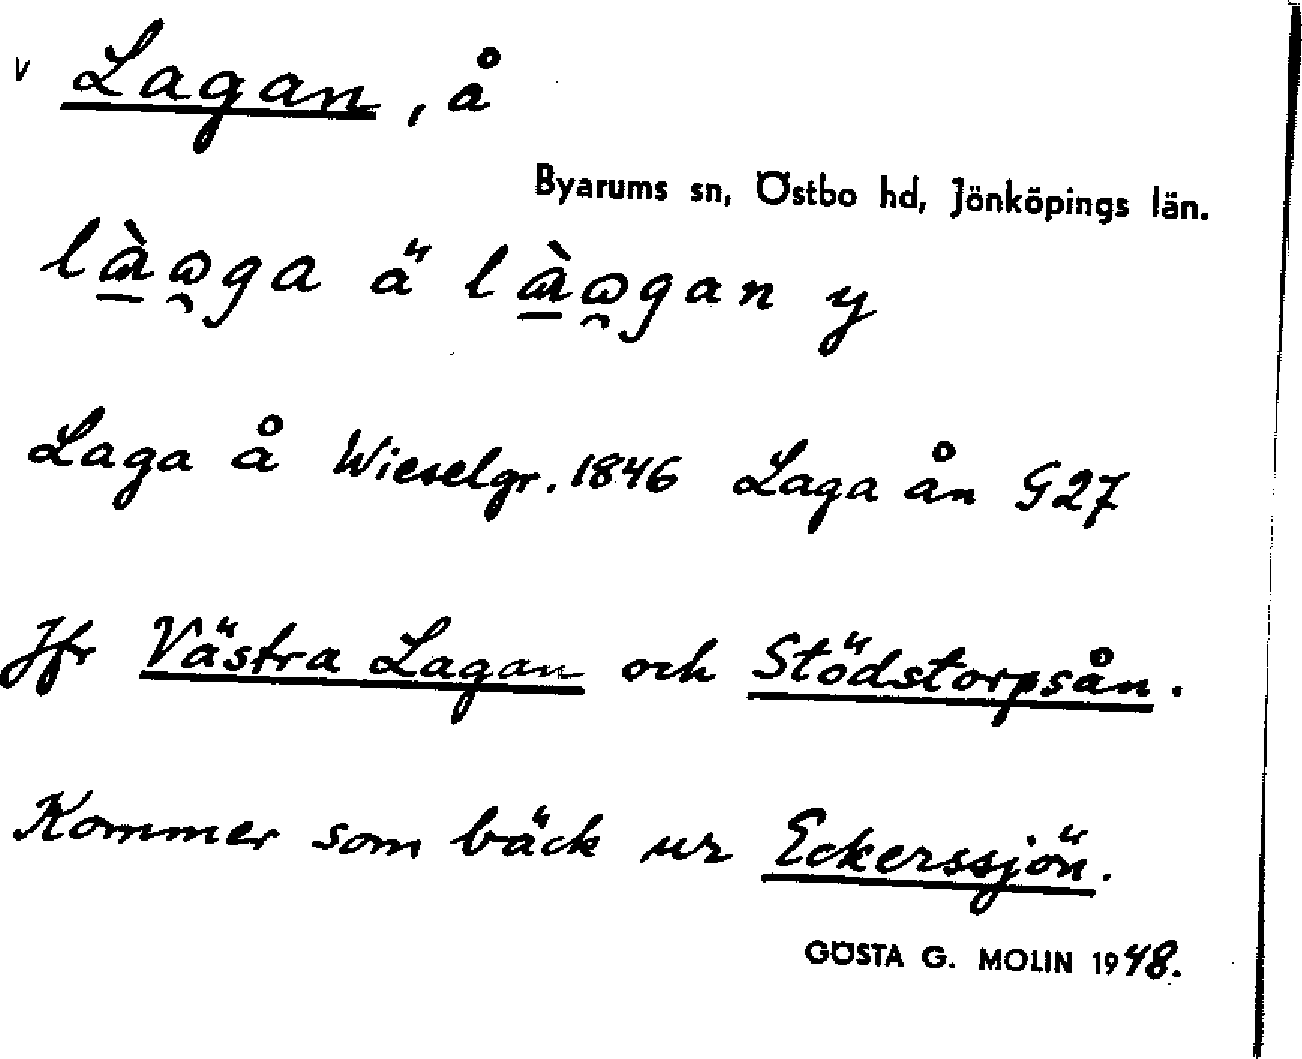 v Lagan, å
Byarums sn, Östbo hd, Jönköpings län.
ä y
Laga å Wieselgr. 1846 Laga ån G27
Jfr Västra Lagan och Stödstorpsån.
Kommer som bäck ur Eckerssjön.
GÖSTA G. MOLIN 1948.